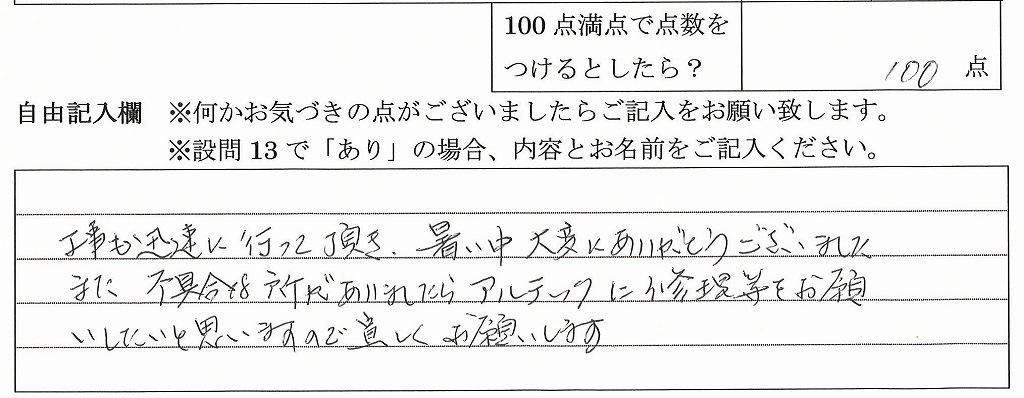 100点満点で点数を
つけるとしたら？
100 点
自由記入欄 ※何かお気づきの点がございましたらご記入をお願い致します。
※設問13で「あり」の場合、内容とお名前をご記入ください。
工事も迅速に行って頂き、暑い中大変にありがとうございました
また不具合な所がありましたらアルテックに修理等をお願
いしたいと思いますので宜しくお願いします